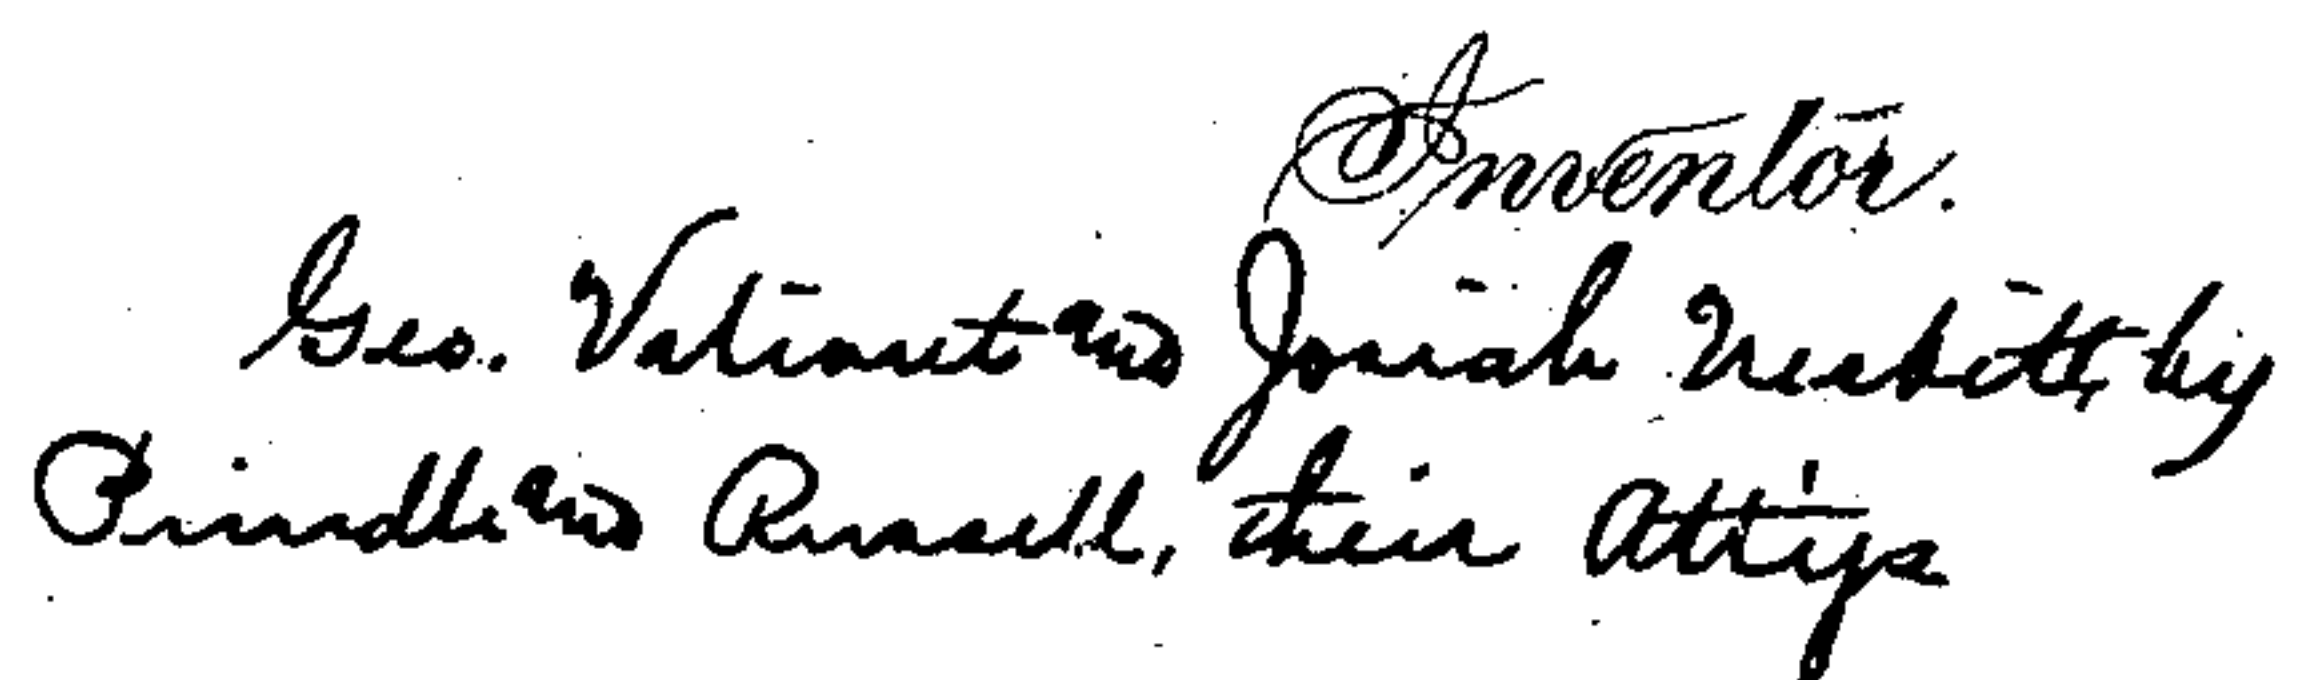 Inventor.
Geo. Valiant and Josiah Nesbitt, by
Prindle and Russell, their Att'ys